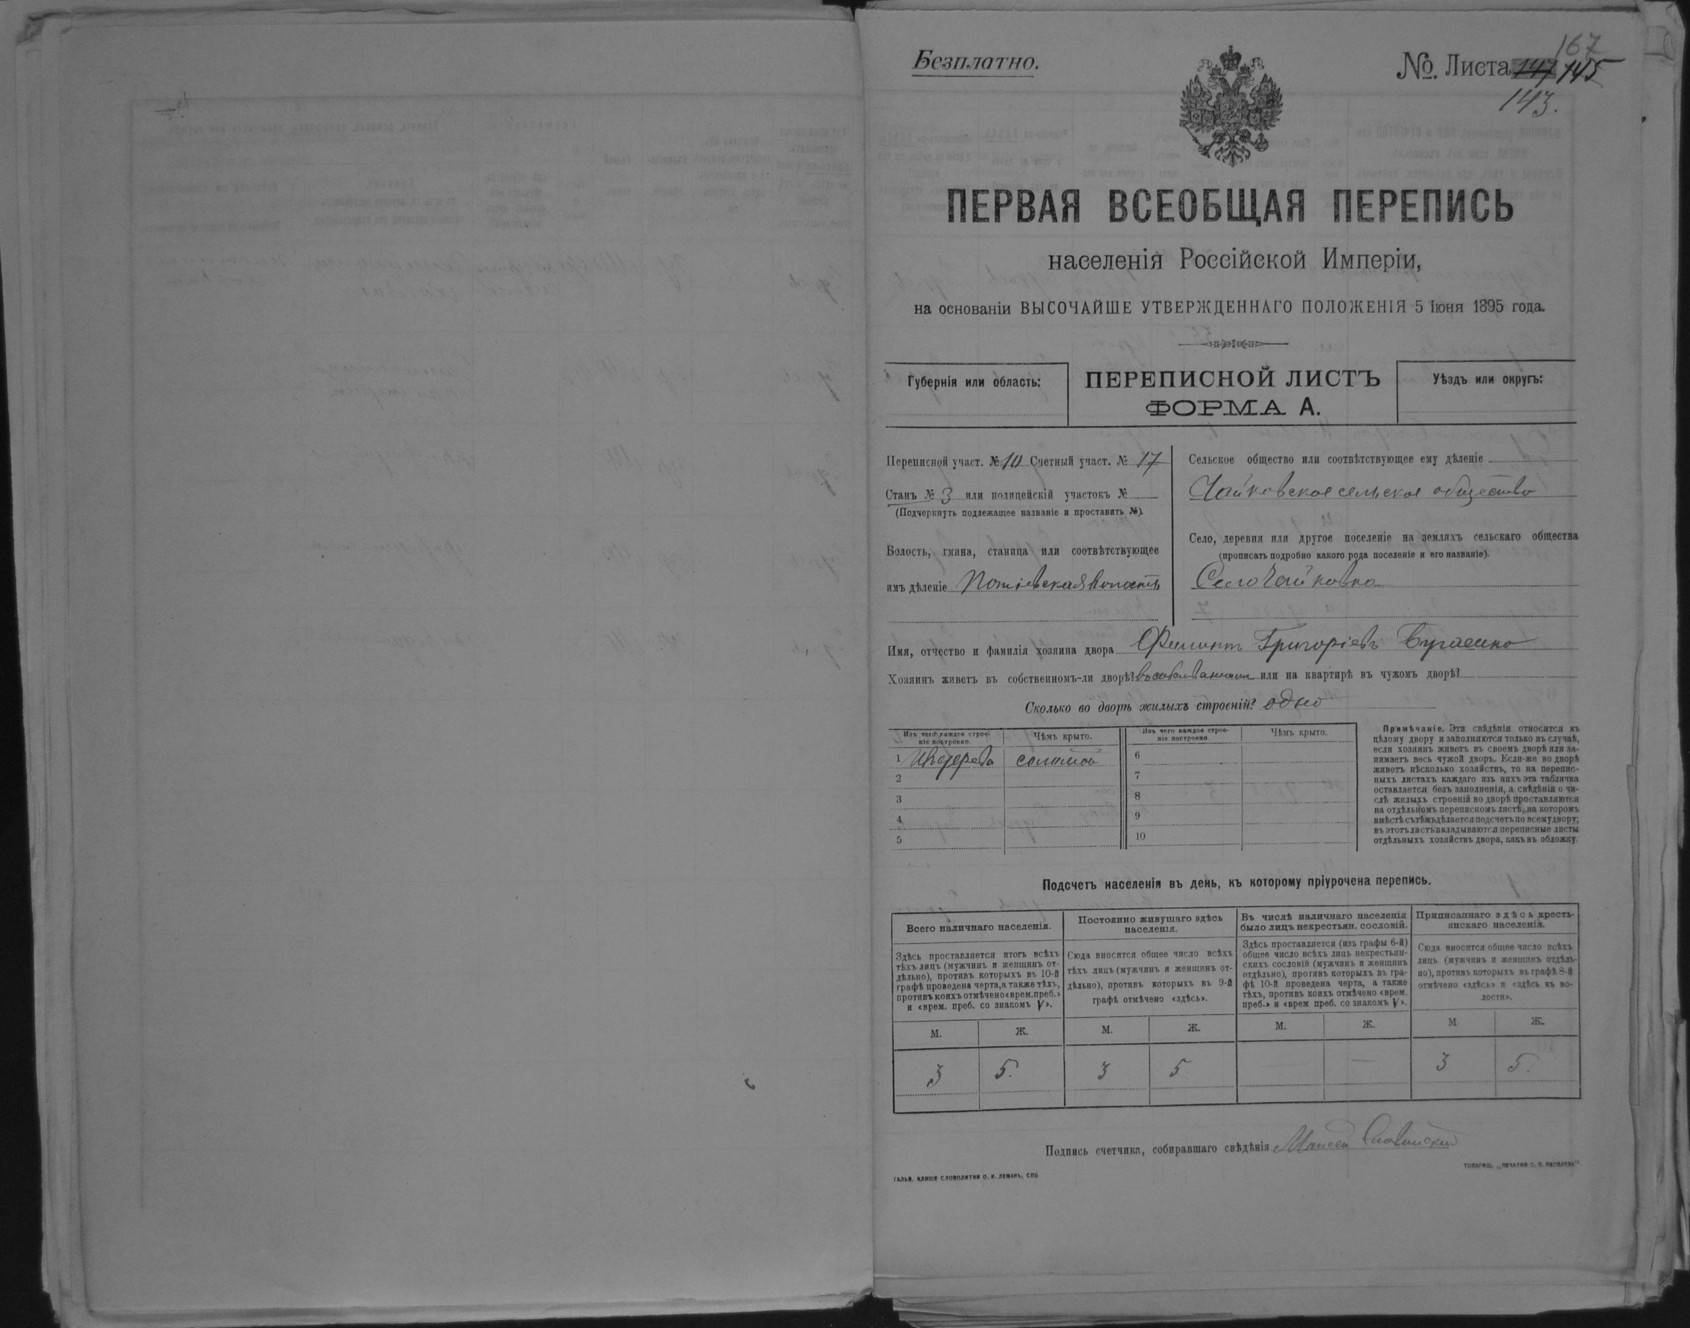 167
Безплатно.
№. Листа 147 145
143.
ПЕРВАЯ ВСЕОБЩАЯ ПЕРЕПИСЬ
населенія Россійской Имперіи,
на основаніи ВЫСОЧАЙШЕ УТВЕРЖДЕННАГО ПОЛОЖЕНІЯ 5 Іюня 1895 года.
Губернія или область:
ПЕРЕПИСНОЙ ЛИСТЪ
ФОРМА А.
Уѣздъ или округъ:
Переписной участ. № 10 Счетный участ. № 17
Станъ № 3 или полицейскій участокъ №
(Подчеркнуть подлежащее названіе и проставить №).
Волость, гмина, станица или соотвѣтствующее
имъ дѣленіе Потіевская волость
Сельское общество или соотвѣтствующее ему дѣленіе
Чайковское сельское общество
Село, деревня или другое поселеніе на земляхъ сельскаго общества
(прописать подробно какого рода поселеніе и его названіе).
Село Чайковка
Имя, отчество и фамилія хозяина двора Филиппъ Григоріевъ Бугаенко
Хозяинъ живетъ въ собственномъ-ли дворѣ? или на квартирѣ въ чужомъ дворѣ?
Сколько во дворѣ жилыхъ строеній? одно
Изъ чего каждое строе-
ніе построено.
Чѣмъ крыто.
1 Изъ дерева соломой
2
3
4
5
Изъ чего каждое строе-
ніе построено
Чѣмъ крыто.
6
7
8
9
10
Примѣчаніе. Эти свѣдѣнія относятся къ
цѣлому двору и заполняются только въ случаѣ,
если хозяинъ живетъ въ своемъ дворѣ или за-
нимаетъ весь чужой дворъ. Если-же во дворѣ
живетъ нѣсколько хозяйствъ, то на перепис-
ныхъ листахъ каждаго изъ нихъ эта табличка
оставляется безъ заполненія, а свѣдѣнія о чи-
слѣ жилыхъ строеній во дворѣ проставляются
на отдѣльномъ переписномъ листѣ, на которомъ
вмѣстѣ съ тѣмъ дѣлается подсчетъ по всему двору;
въ этотъ листъ вкладываются переписные листы
отдѣльныхъ хозяйствъ двора, какъ въ обложку.
Подсчетъ населенія въ день, къ которому пріурочена перепись.
Всего наличнаго населенія.
Здѣсь проставляется итогъ всѣхъ
тѣхъ лицъ (мужчинъ и женщинъ от-
дѣльно), противъ которыхъ въ 10-й
графѣ проведена черта, а также тѣхъ,
противъ коихъ отмѣчено «врем. преб.»
и «врем. преб. со знакомъ V».
М. Ж.
3 5.
Постоянно живущаго здѣсь
населенія.
Сюда вносится общее число всѣхъ
тѣхъ лицъ (мужчинъ и женщинъ от-
дѣльно), противъ которыхъ въ 9-й
графѣ отмѣчено «здѣсь».
М. Ж.
3 5
Въ числѣ наличнаго населенія
было лицъ некрестьян. сословій.
Здѣсь проставляется (изъ графы 6-й)
общее число всѣхъ лицъ некрестьян-
скихъ сословій (мужчинъ и женщинъ
отдѣльно), противъ которыхъ въ гра-
фѣ 10-й проведена черта, а также
тѣхъ, противъ коихъ отмѣчено «врем.
преб.» и «врем преб. со знакомъ V».
М. Ж.
— —
Приписаннаго здѣсь кресть-
янскаго населенія.
Сюда вносится общее число всѣхъ
лицъ (мужчинъ и женщинъ отдѣль-
но), противъ которыхъ въ графѣ 8-й
отмѣчено «здѣсь» и «здѣсь въ во-
лости».
М. Ж.
3 5.
Подпись счетчика, собиравшаго свѣдѣнія
ГАЛЬВ. КЛИШЕ СЛОВОЛИТНИ О. И. ЛЕМАНЪ, СПБ.